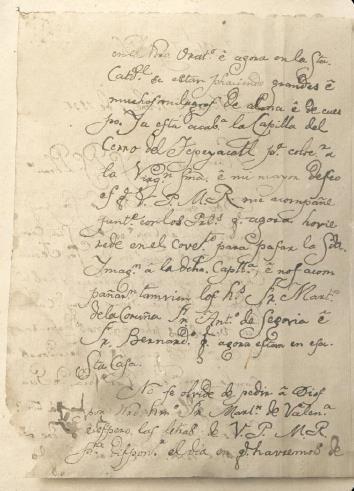 en el Orat.º é agora en la Sta.
Cat.l se estan haciendo grandes é
muchos milagros de alma é de cuer
po. Ya está acab.ª la Capilla del
Cerro del Tepeyacatl p.ª
la Virgn Sma. é mi mayor deseo
es q. V. P. M. R. me acompañe
junt.º con los q. agora hovie
rede en el Conv.to para pasar la Sda.
Imag.n á la dcha. Cap.lla, é nos acom
pañar.n tamvien los h.s Fr. Mart.n
de la Coruña Fr. Ant.º de Segovia é
Fr. Bernard.º q. agora estan en esa
Sta Casa.
No se olvide de pedir á Dios
por Nro. hm.º Fr. Mart.n de Valen.ª
é espero las letras de V. P. M. R.
p.ª dispon.r el dia en q. havremos de